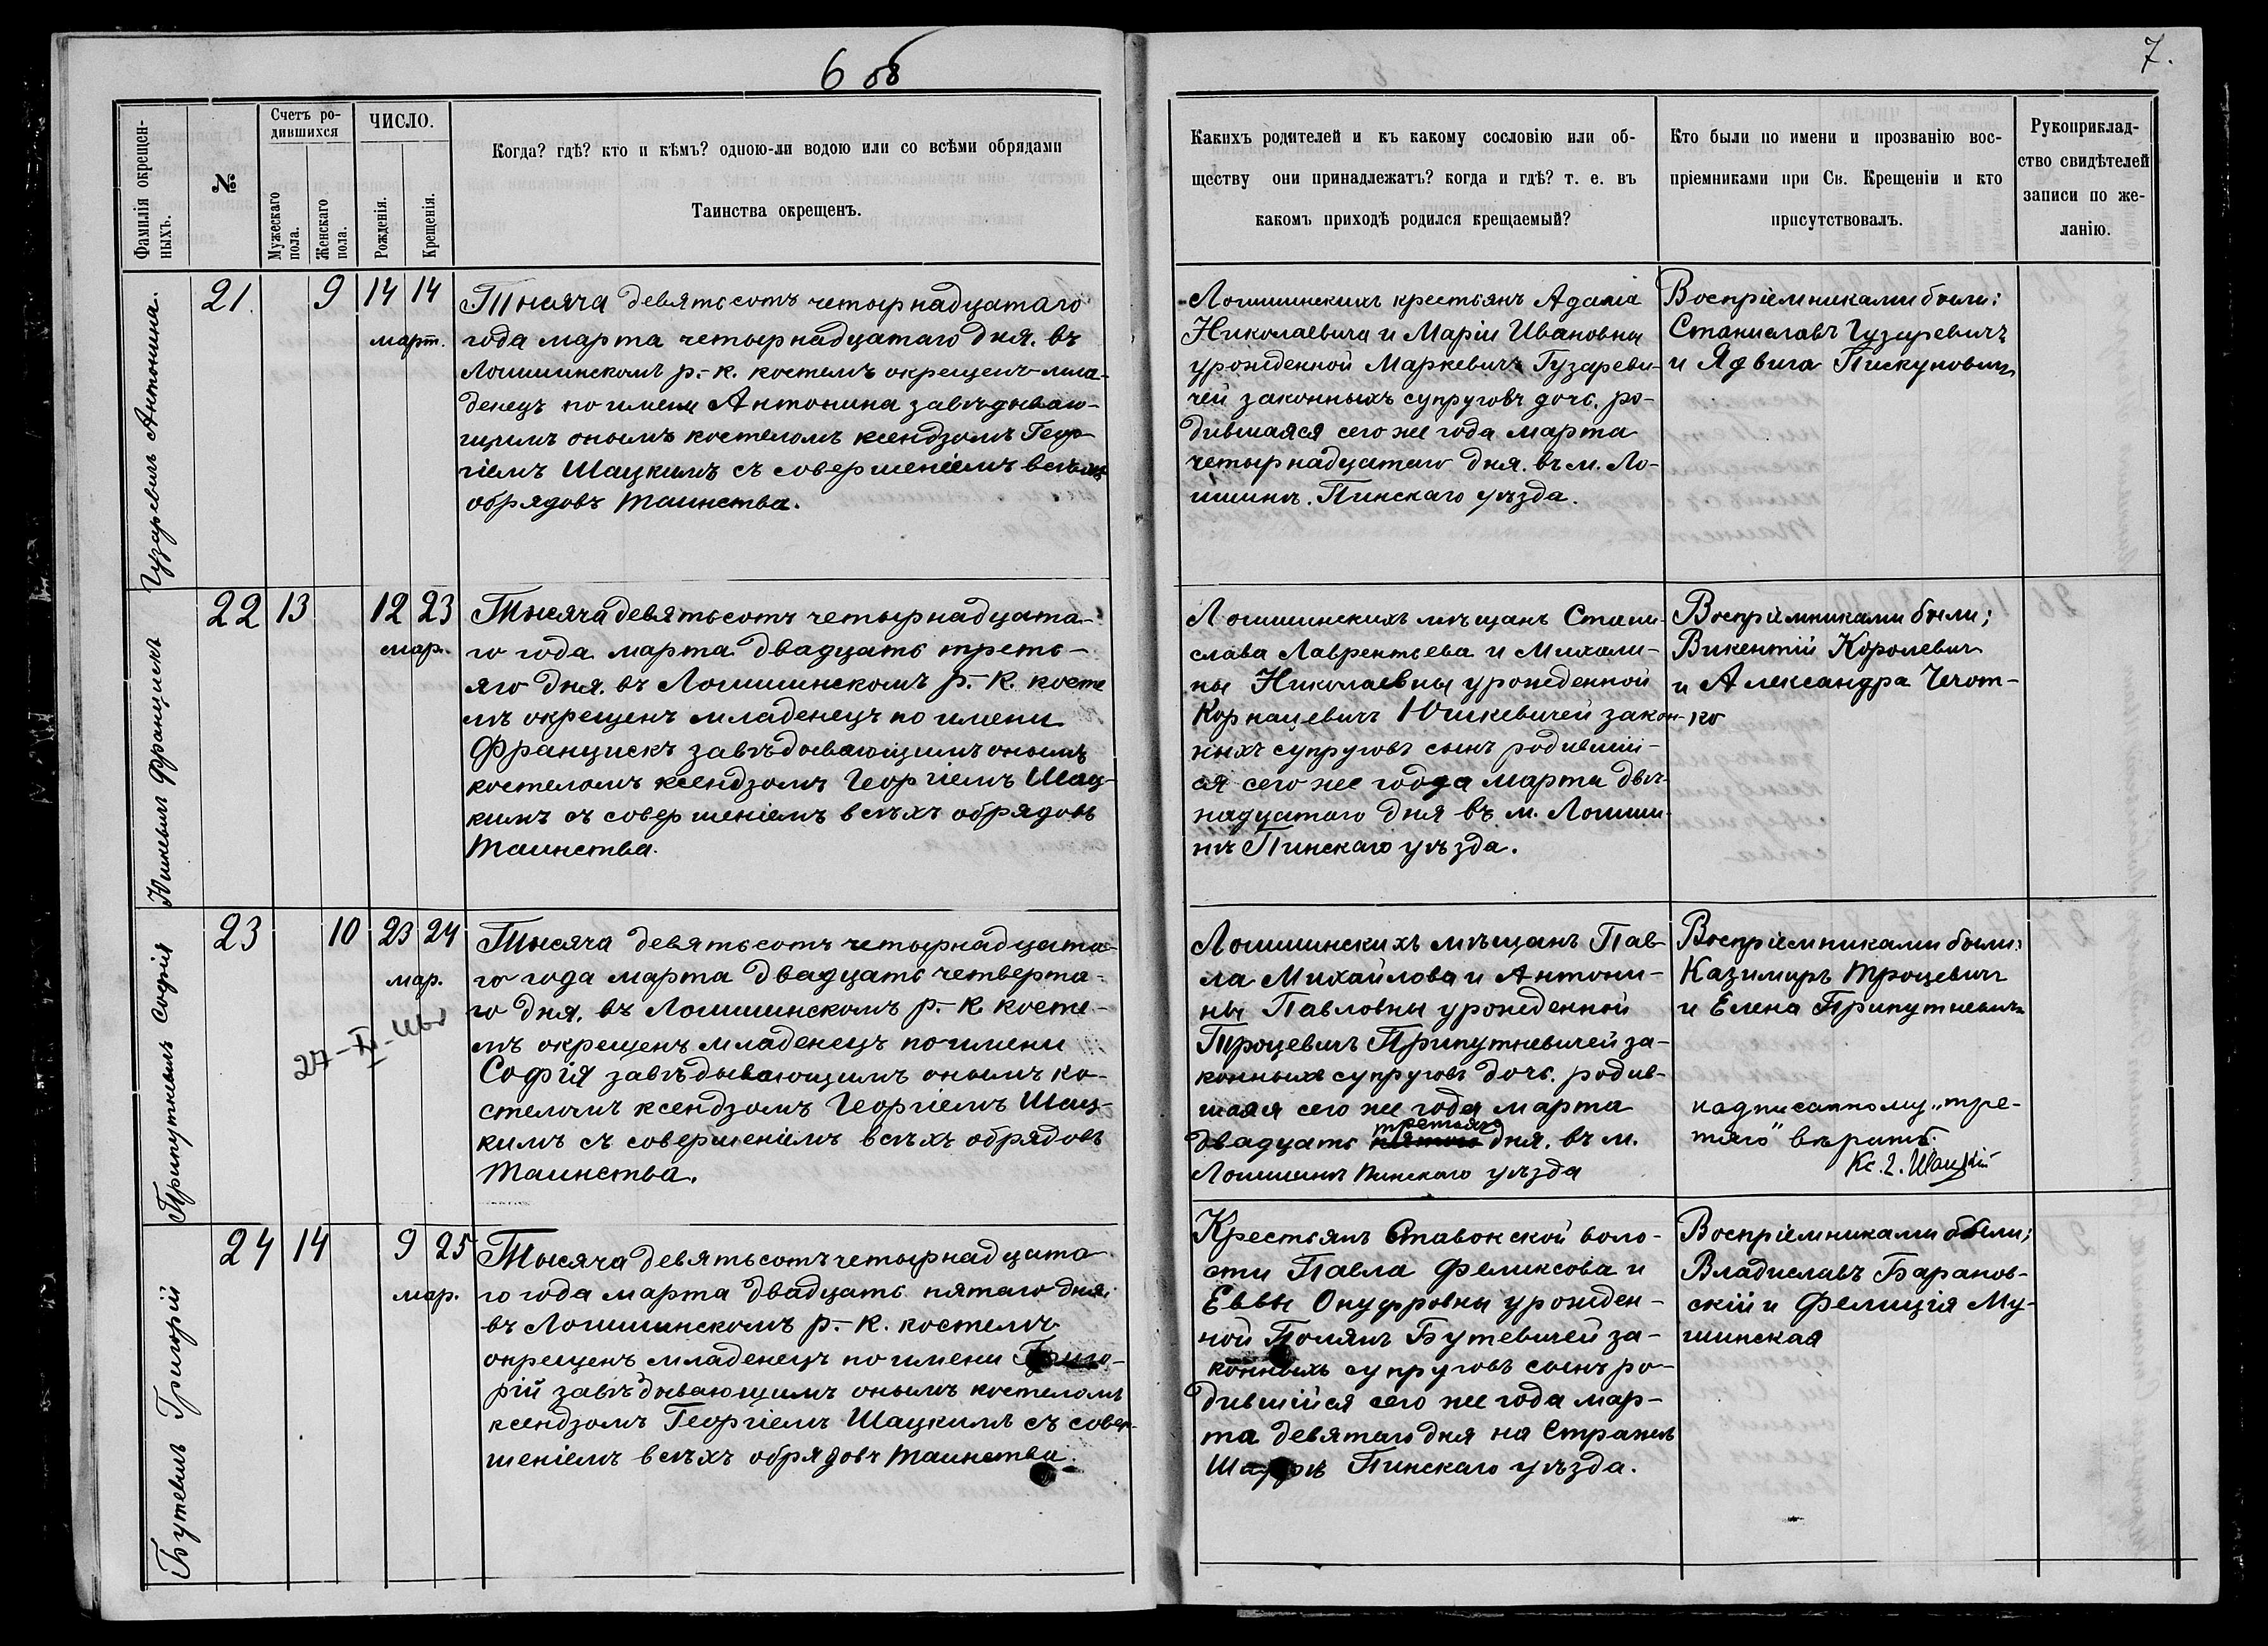 6 об
7.
Фамилія окрещен-
ныхъ.
№
Счетъ ро-
дившихся
Мужескаго
пола.
Женскаго
пола.
ЧИСЛО.
Рожденія.
Крещенія.
Когда? гдѣ? кто и кѣмъ? одною-ли водою или со всѣми обрядами
Таинства окрещенъ.
Какихъ родителей и къ какому сословію или об-
ществу они принадлежатъ? когда и гдѣ? т. е. въ
какомъ приходѣ родился крещаемый?
Кто были по имени и прозванію вос-
пріемниками при Св. Крещеніи и кто
присутствовалъ.
Рукоприклад-
ство свидѣтелей
записи по же-
ланію.
Гузаревичъ Антонина.
21.
9
14
14
март.
Тысяча девятьсотъ четырнадцатаго
года марта четырнадцатаго дня. въ
Логишинскомъ р.-к. костелѣ окрещенъ мла-
денецъ по имени Антонина завѣдываю-
щимъ онымъ костеломъ ксендзомъ Геор-
гіемъ Шацкимъ съ совершеніемъ всѣхъ
обрядовъ таинства.
Логишинскихъ крестьянъ Адама
Николаевича и Маріи Ивановны
урожденной Маркевичъ Гузареви-
чей законныхъ супруговъ дочь. ро-
дившаяся сего же года марта
четырнадцатаго дня. въ м. Ло-
гишинѣ. Пинскаго уѣзда.
Воспріемниками были:
Станиславъ Гузаревичъ
и Ядвига Пискуновичъ
Юшкевичъ Францискъ
22
13
12
23
мар.
Тысяча девятьсотъ четырнадцата-
го года марта двадцать треть-
яго дня. въ Логишинскомъ р.-к. косте
лѣ окрещенъ младенецъ по имени
Францискъ завѣдывающимъ онымъ
костеломъ ксендзомъ Георгіемъ Шац-
кимъ съ совершеніемъ всѣхъ обрядовъ
таинства.
Логишинскихъ мѣщанъ Стани-
слава Лаврентьева и Михали-
ны Николаевны урожденной
Корнацевичъ Юшкевичей закон-
ныхъ супруговъ сынъ родившій-
ся сего же года марта двѣ-
надцатаго дня въ м. Логиши-
нѣ Пинскаго уѣзда.
Воспріемниками были;
Викентій Королевичъ
и Александра Чечот-
ко
Припутневичъ Софія
23
10
23
24
мар.
Тысяча девятьсотъ четырнадцата-
го года марта двадцать четверта-
го дня. въ Логишинскомъ р.-к. косте-
лѣ окрещенъ младенецъ по имени
Софія завѣдывающимъ онымъ ко-
стеломъ ксендзомъ Георгіемъ Шац-
кимъ съ совершеніемъ всѣхъ обрядовъ
таинства.
Логишинскихъ мѣщанъ Пав-
ла Михайлова и Антони-
ны Павловны урожденной
Троцевичъ Припутневичей за-
конныхъ супруговъ дочь. родив-
шаяя сего же года марта
третьяго
двадцать пятого дня. въ м.
Логишинѣ Пинскаго уѣзда
Воспріемниками были:
Казимиръ Троцевичъ
и Елена Припутневичъ
надписанному „тре-
тяго" вѣрить.
Кс. Г. Шацкій
Бутевичъ Григорій
24
14
9
25
мар.
Тысяча девятьсотъ четырнадцата
го года марта двадцать пятаго дня.
въ Логишинскомъ р.-к. костелѣ
окрещенъ младенецъ по имени Григо-
рій завѣдывающимъ онымъ костеломъ
ксендзомъ Георгіемъ Шацкимъ съ совер-
шеніемъ всѣхъ обрядовъ таинства.
Крестьянъ Ставокской воло-
сти Павла Феликсова и
Еввы Онуфровны урожден-
ной Полянъ Бутевичей за-
конныхъ супруговъ сынъ ро-
дившійся сего же года мар-
та девятаго дня на Стражѣ
Пинскаго уѣзда.
Воспріемниками были;
Владиславъ Баранов-
скій и Фелиція Му-
шинская